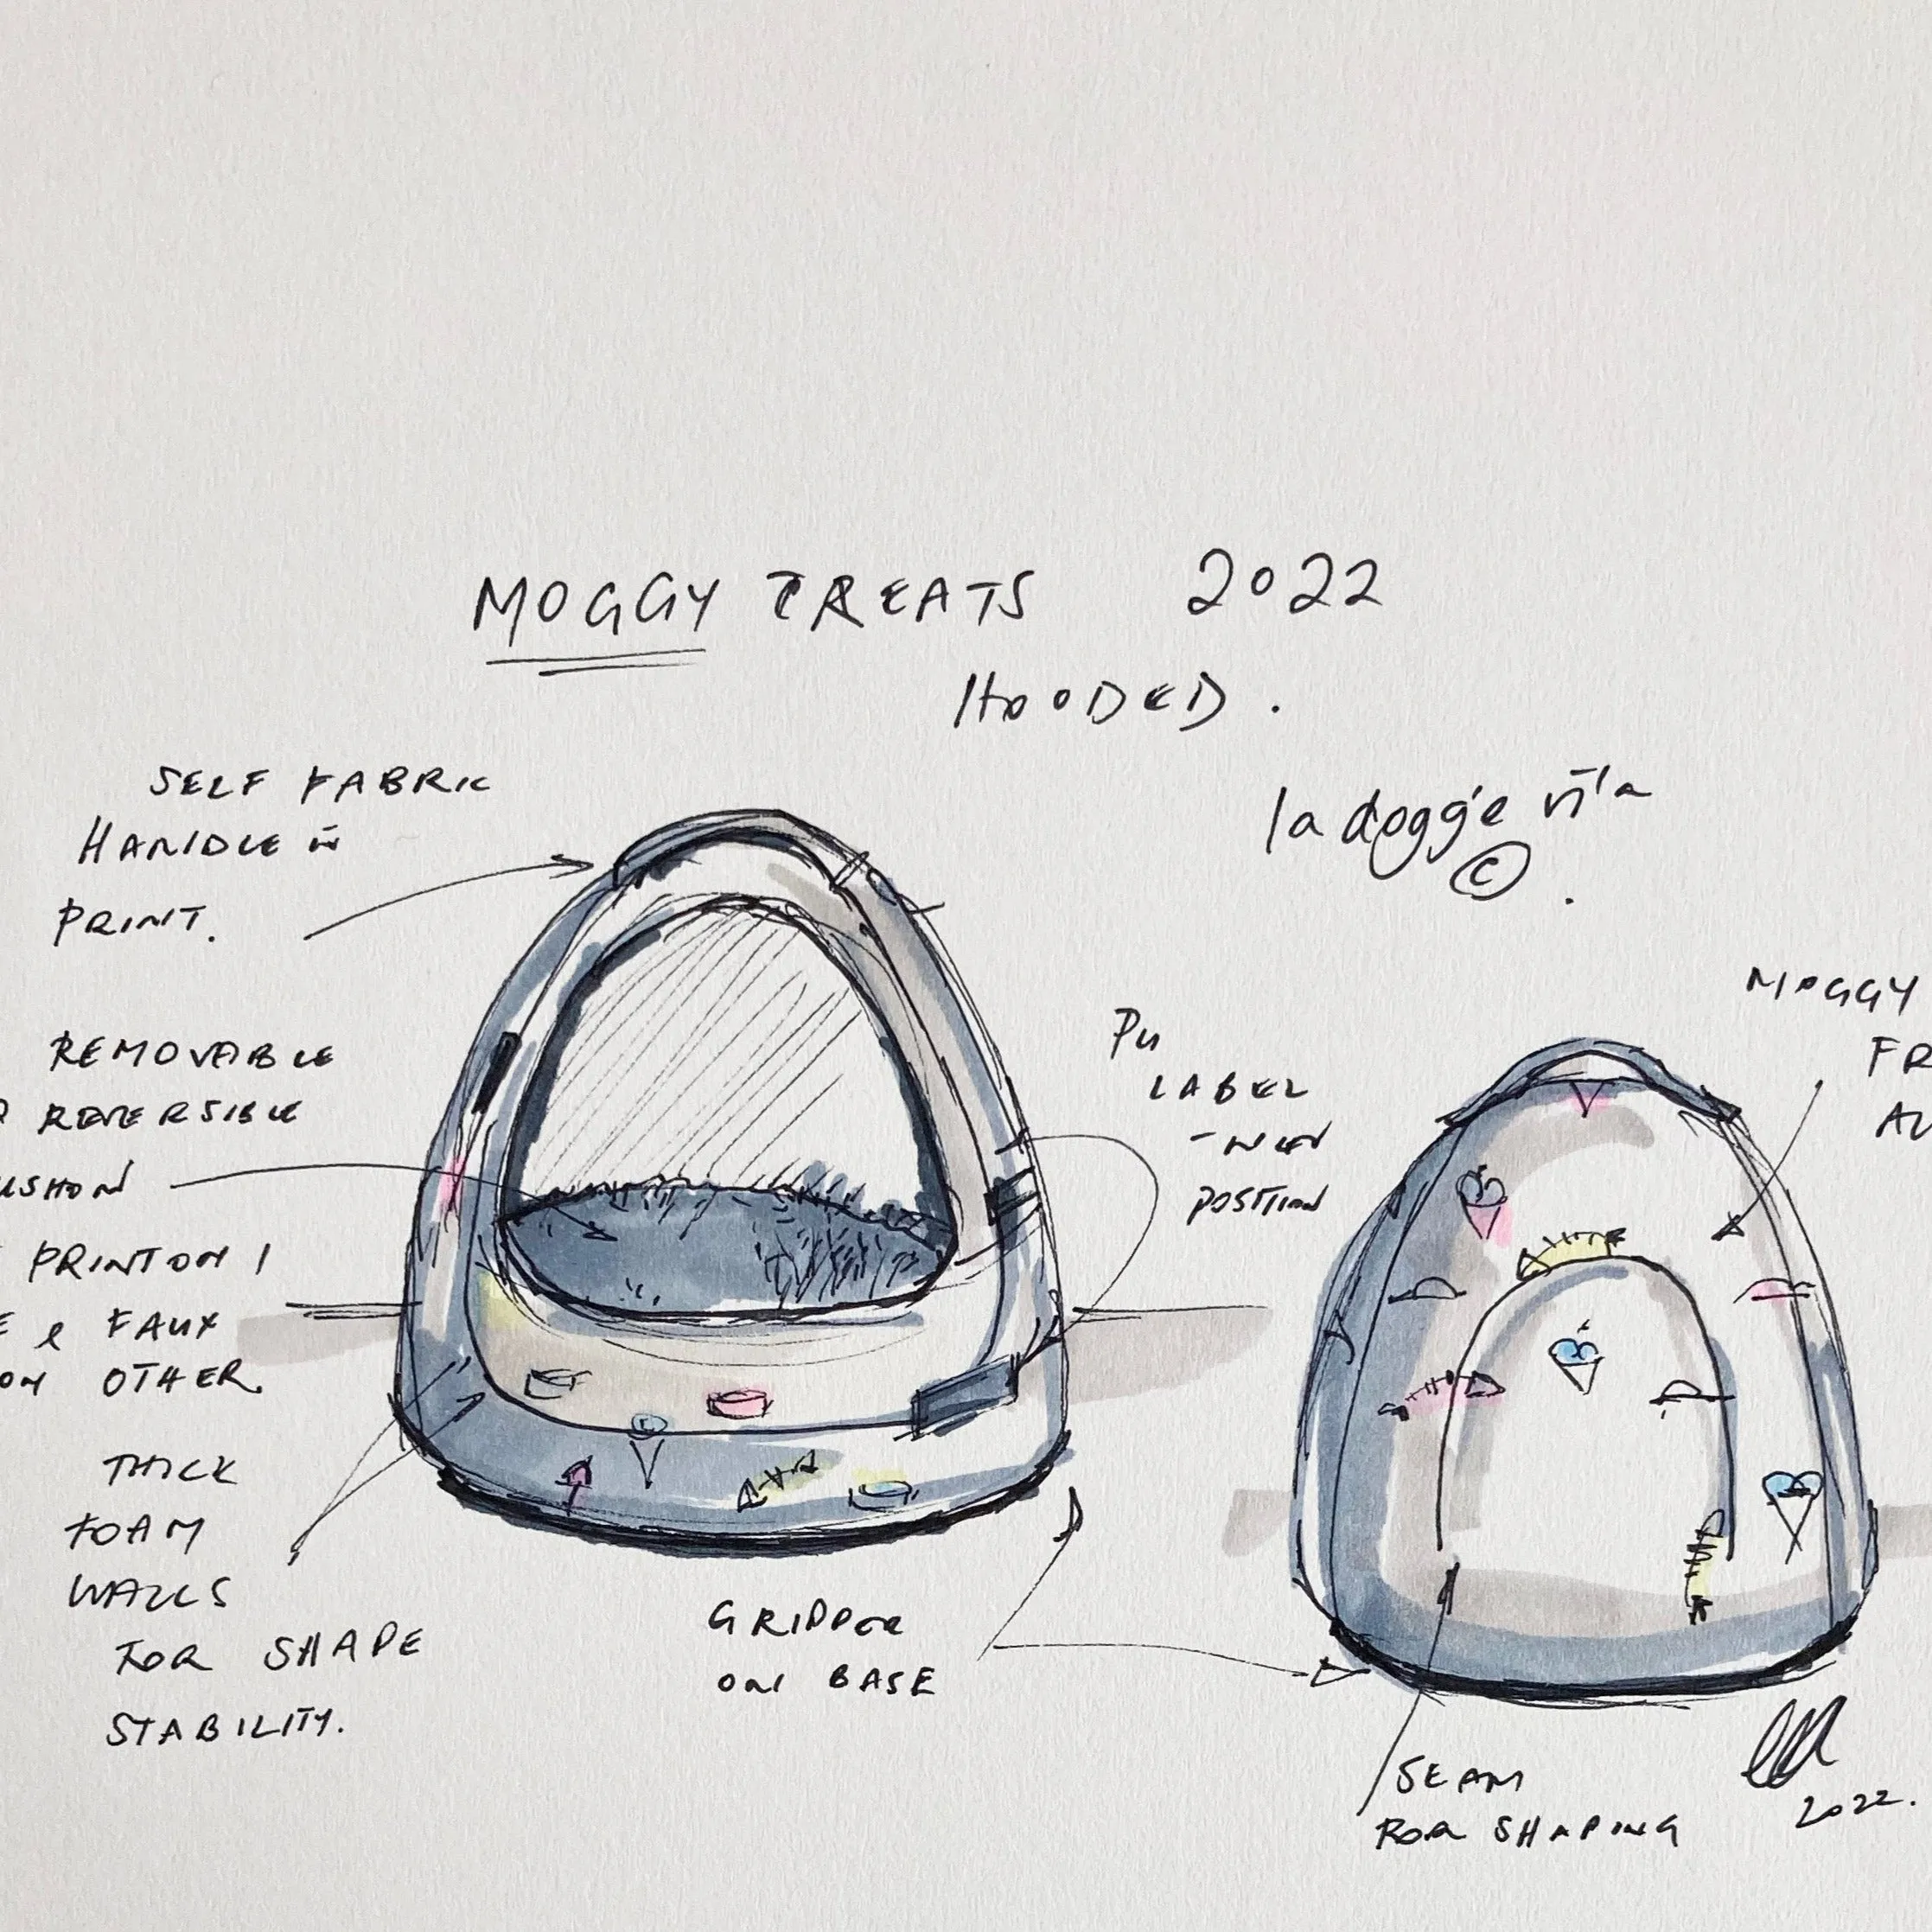 MOGGY TREATS 2022
HOODED.
la doggie vita
©.
SELF FABRIC
HANDLE in
PRINT.
REMOVABLE
REVERSIBLE
PRINT ON 1
& FAUX
ON OTHER.
THICK
FOAM
WALLS
FOR SHAPE
STABILITY.
PU
LABEL
- NEW
POSITION
GRIPPER
ON BASE
MOGGY
SEAM
FOR SHAPING
2022.